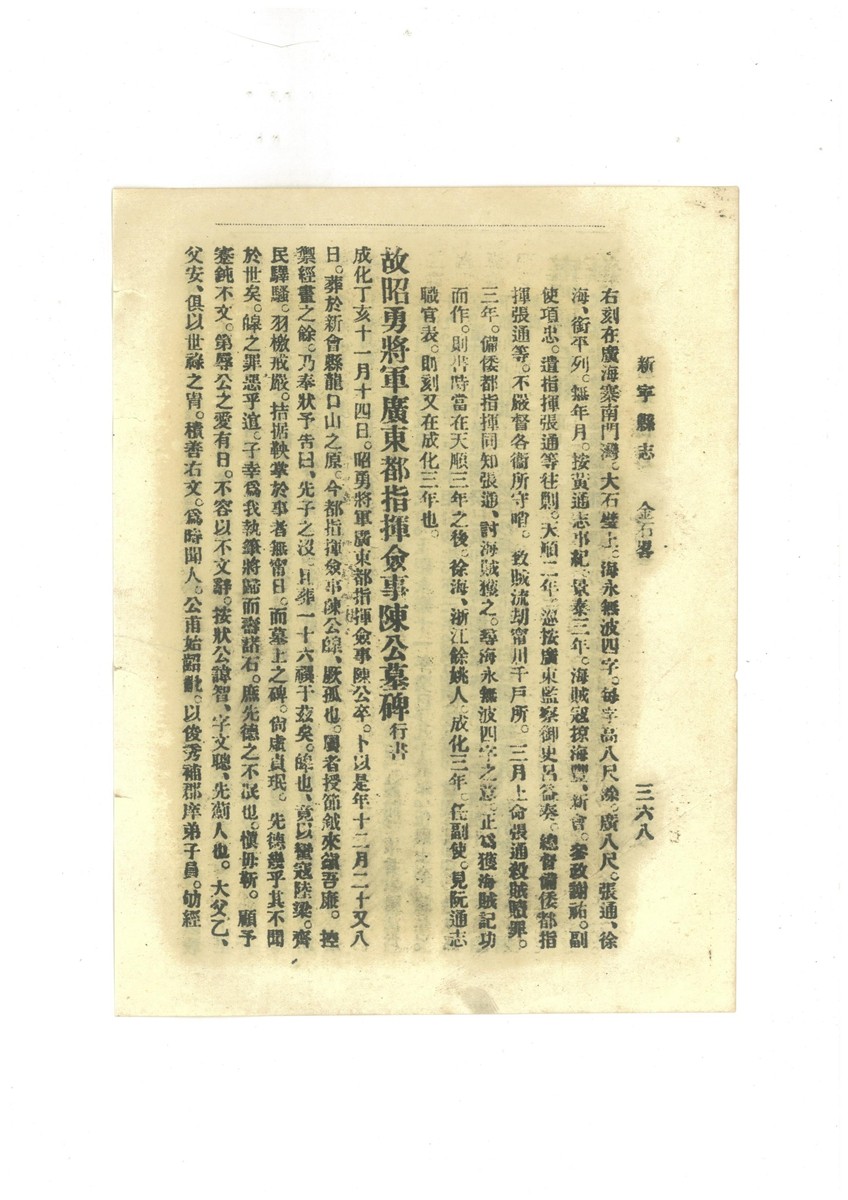 新寧縣志 金石畧 三六八
右刻在廣海寨南門灣。大石壁上。海永無波四字。每字高八尺餘。廣八尺。張通、徐
海、銜平列。無年月。按黃通志事紀。景泰三年。海賊寇掠海豐、新會。參政謝祐。副
使項忠。遣指揮張通等往剿。天順二年。巡按廣東監察御史呂益奏。總督備倭都指
揮張通等。不嚴督各衞所守哨。致賊流劫甯川千戶所。三月上命張通殺賊贖罪。
三年。備倭都指揮同知張通、討海賊獲之。尋海永無波四字之意。正爲獲海賊記功
而作。則書時當在天順三年之後。徐海、浙江餘姚人。成化三年。任副使。見阮通志
職官表。則刻又在成化三年也。
故昭勇將軍廣東都指揮僉事陳公墓碑行書
成化丁亥十一月十四日。昭勇將軍廣東都指揮僉事陳公卒。卜以是年十二月二十又八
日。葬於新會縣龍口山之原。今都指揮僉事陳公皞、厥孤也。曩者授節鉞來鎮吾廉。控
禦經畫之餘。乃奉狀予告曰、先子之沒。且葬一十六禩于茲矣。皞也、竟以蠻寇陸梁。齊
民驛騷。羽檄戒嚴。拮据鞅掌於事者無甯日。而墓上之碑。尙虛貞珉。先德幾乎其不聞
於世矣。皞之罪惡乎逭。子幸爲我執筆將歸而壽諸石。庶先德之不泯也。愼毋靳。顧予
蹇鈍不文。第辱公之愛有日。不容以不文辭。按狀公諱智、字文聰、先薊人也。大父乙、
父安、俱以世祿之胄。積善右文。爲時聞人。公甫始齠齓。以俊秀補郡庠弟子員。幼經